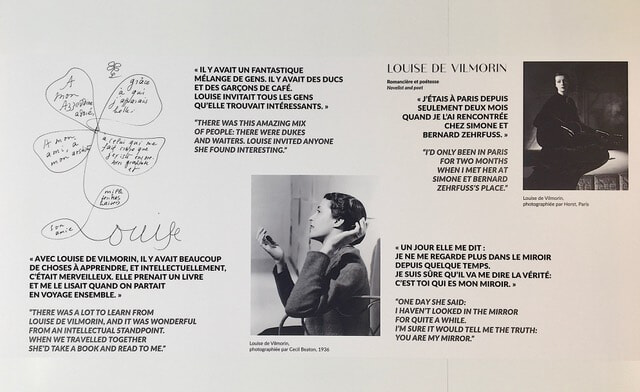 A
mon
grâce
à qui
j'apparais
belle
A mon
ami, a
mille
Louise
« IL Y AVAIT UN FANTASTIQUE
MÉLANGE DE GENS. IL Y AVAIT DES DUCS
ET DES GARÇONS DE CAFÉ.
LOUISE INVITAIT TOUS LES GENS
QU'ELLE TROUVAIT INTÉRESSANTS. »
"THERE WAS THIS AMAZING MIX
OF PEOPLE: THERE WERE DUKES
AND WAITERS. LOUISE INVITED ANYONE
SHE FOUND INTERESTING."
LOUISE DE VILMORIN
Romancière et poétesse
Novelist and poet
« J'ÉTAIS À PARIS DEPUIS
SEULEMENT DEUX MOIS
QUAND JE L'AI RENCONTRÉE
CHEZ SIMONE ET
BERNARD ZEHRFUSS. »
"I'D ONLY BEEN IN PARIS
FOR TWO MONTHS
WHEN I MET HER AT
SIMONE ET BERNARD
ZEHRFUSS'S PLACE."
Louise de Vilmorin,
photographiée par Horst, Paris
« AVEC LOUISE DE VILMORIN, IL Y AVAIT BEAUCOUP
DE CHOSES À APPRENDRE, ET INTELLECTUELLEMENT,
C'ÉTAIT MERVEILLEUX. ELLE PRENAIT UN LIVRE
ET ME LE LISAIT QUAND ON PARTAIT
EN VOYAGE ENSEMBLE. »
"THERE WAS A LOT TO LEARN FROM
LOUISE DE VILMORIN, AND IT WAS WONDERFUL
FROM AN INTELLECTUAL STANDPOINT.
WHEN WE TRAVELLED TOGETHER
SHE'D TAKE A BOOK AND READ TO ME."
Louise de Vilmorin,
photographiée par Cecil Beaton, 1936
« UN JOUR ELLE ME DIT :
JE NE ME REGARDE PLUS DANS LE MIROIR
DEPUIS QUELQUE TEMPS.
JE SUIS SÛRE QU'IL VA ME DIRE LA VÉRITÉ:
C'EST TOI QUI ES MON MIROIR. »
"ONE DAY SHE SAID:
I HAVEN'T LOOKED IN THE MIRROR
FOR QUITE A WHILE.
I'M SURE IT WOULD TELL ME THE TRUTH:
YOU ARE MY MIRROR."